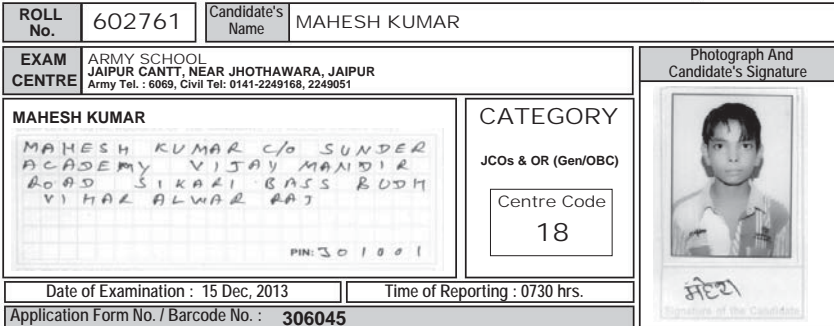 ROLL No. 602761 Candidate's Name MAHESH KUMAR
EXAM CENTRE
ARMY SCHOOL
JAIPUR CANTT, NEAR JHOTHAWARA, JAIPUR
Army Tel. : 6069, Civil Tel: 0141-2249168, 2249051
Photograph And
Candidate's Signature
MAHESH KUMAR
MAHESH KUMAR C/o SUNDER
ACADEMY VIJAY MANDIR
ROAD SIKARI BASS BUDH
VIHAR ALWAR RAJ
PIN: 301001
CATEGORY
JCOs & OR (Gen/OBC)
Centre Code
18
महेश
Signature of the Candidate
Date of Examination : 15 Dec, 2013 Time of Reporting : 0730 hrs.
Application Form No. / Barcode No. : 306045